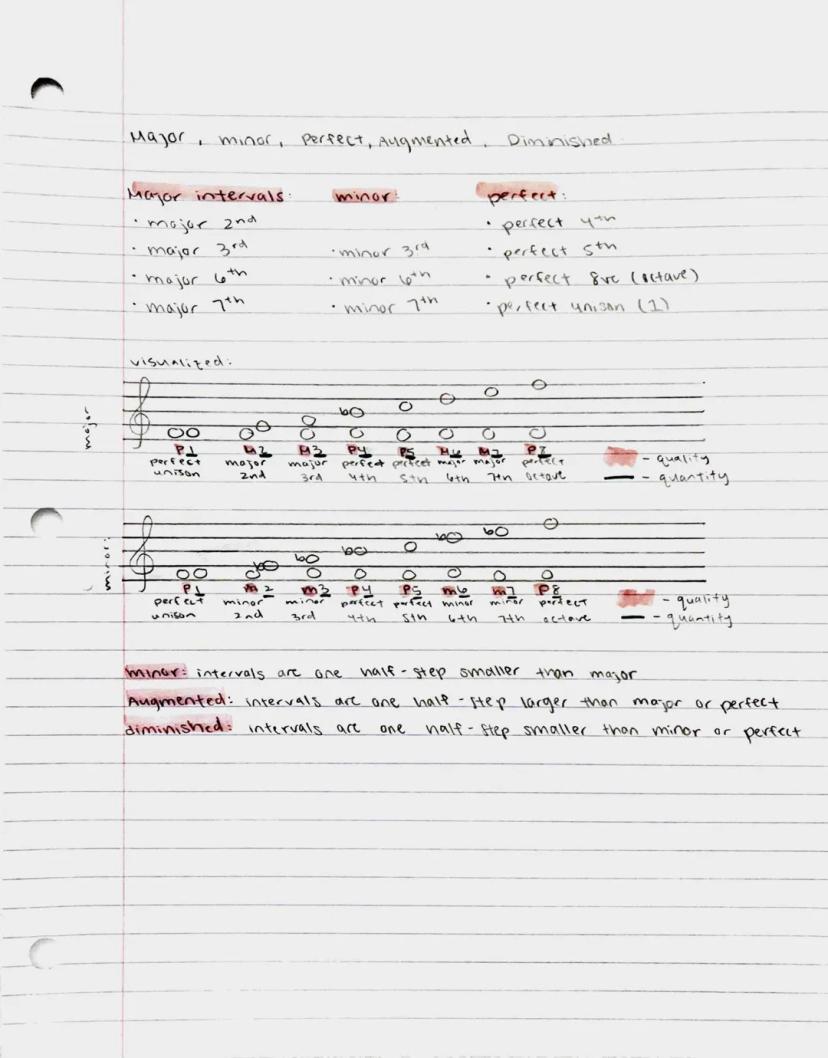 Major, minor, perfect, Augmented, Diminished
Major intervals: minor: perfect:
• major 2nd • perfect 4th
• major 3rd • minor 3rd • perfect 5th
• major 6th • minor 6th • perfect 8ve (octave)
• major 7th • minor 7th • perfect unison (1)
visualized:
major
P1 M2 M3 P4 P5 M6 M7 P8
perfect major major perfect perfect major major perfect - quality
unison 2nd 3rd 4th 5th 6th 7th octave - quantity
minor:
P1 m2 m3 P4 P5 m6 m7 P8
perfect minor minor perfect perfect minor minor perfect - quality
unison 2nd 3rd 4th 5th 6th 7th octave - quantity
minor: intervals are one half-step smaller than major
Augmented: intervals are one half-step larger than major or perfect
diminished: intervals are one half-step smaller than minor or perfect